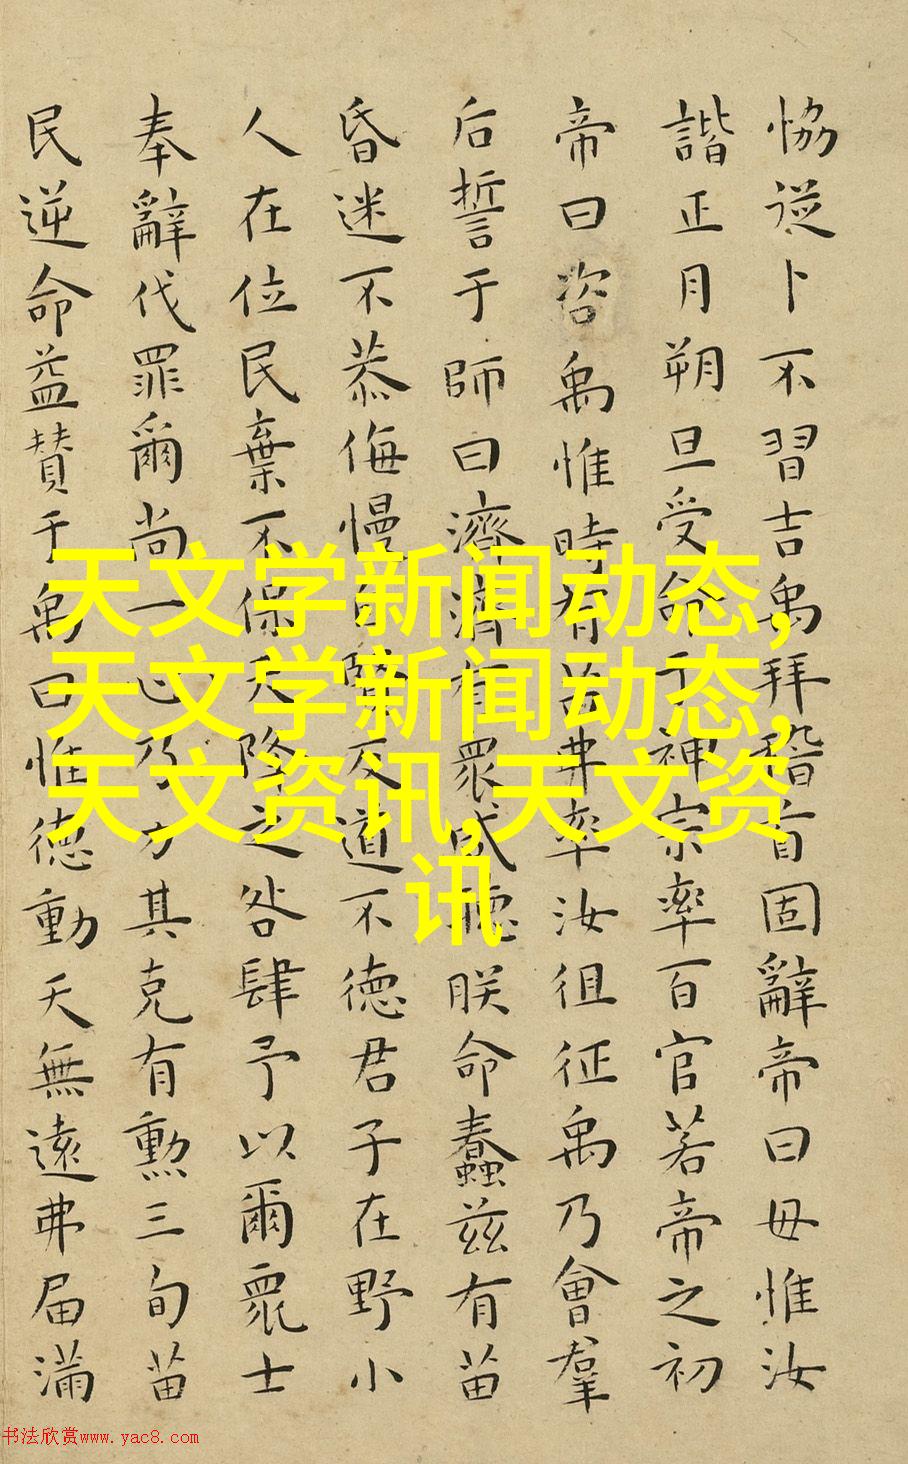 恊從卜不習吉禹拜稽首固辭帝曰毋惟汝
諧正月朔旦受命于神宗率百官若帝之初
帝曰咨禹惟時有苗弗率汝徂征禹乃會羣
后誓于師曰濟濟有眾咸聽朕命蠢茲有苗
昏迷不恭侮慢自賢反道不德君子在野小
人在位民棄不保天降之咎肆予以爾眾士
奉辭伐罪爾尚一心乃力其克有勲三旬苗
民逆命益賛于禹曰惟德動天無遠弗届滿
天文学新闻动态,
天文学新闻动态,
天文资讯,天文资
讯
书法欣赏www.yac8.com